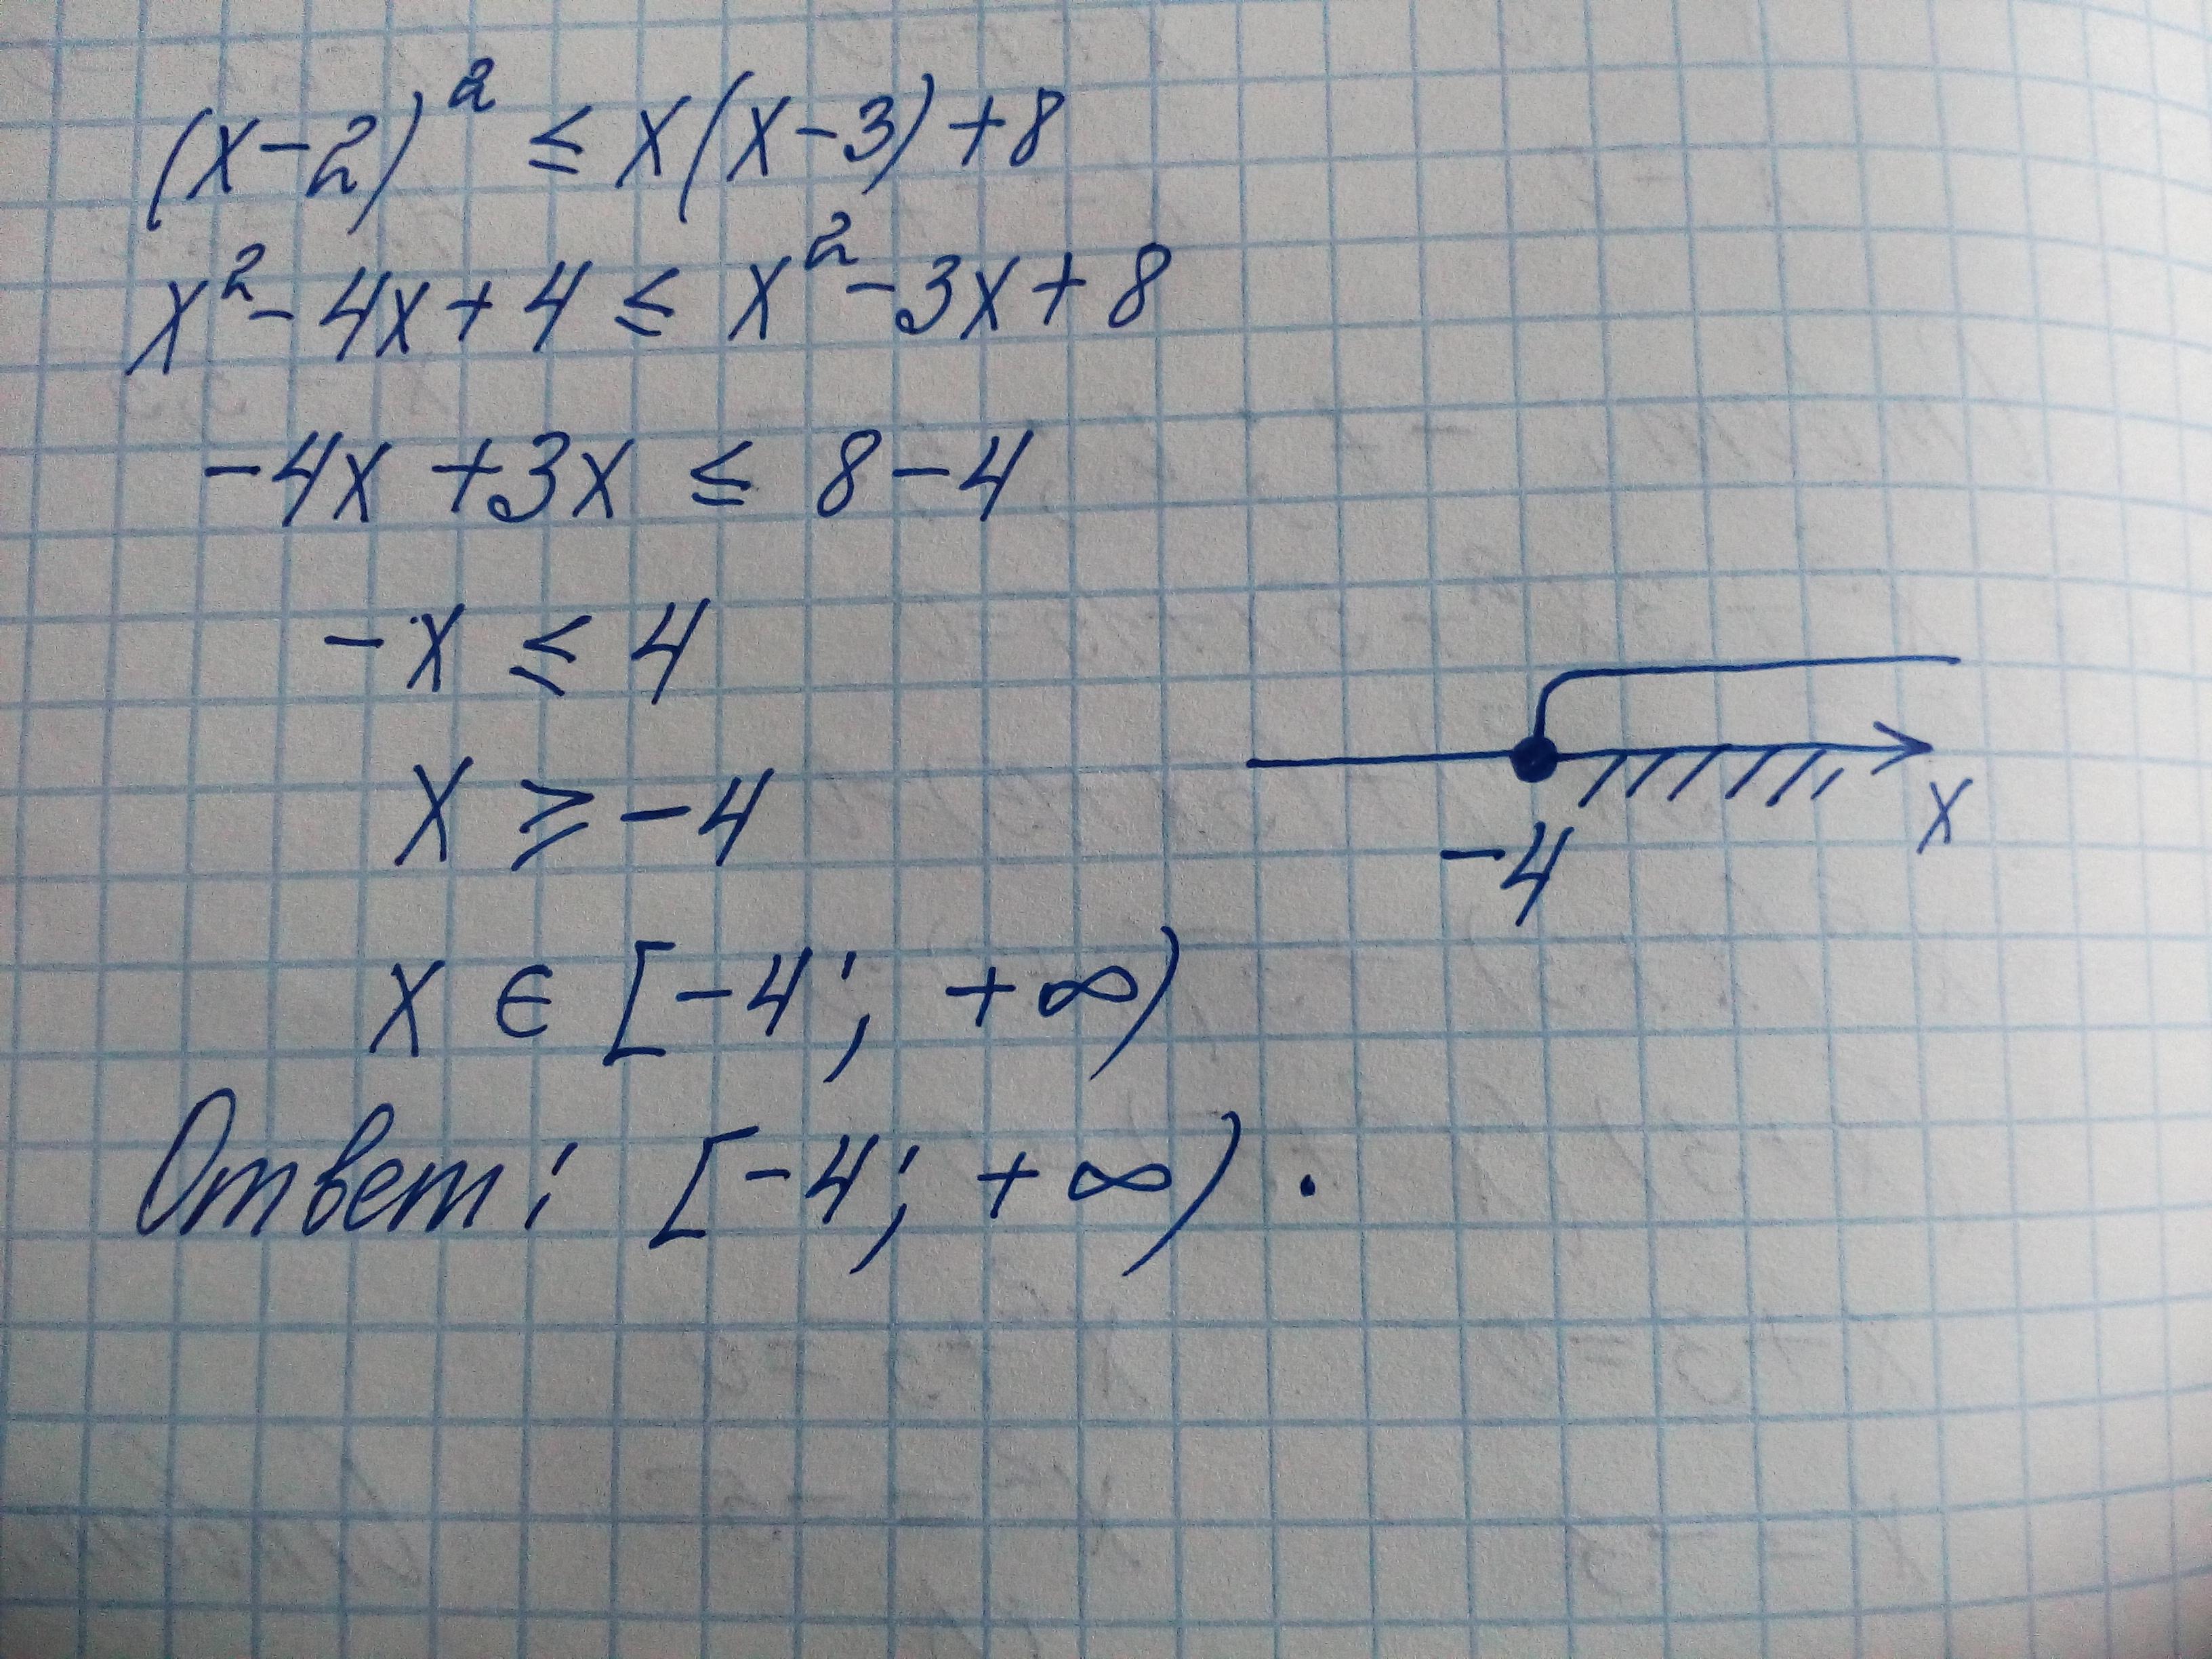 (x-2)² ≤ x(x-3)+8
x²-4x+4 ≤ x²-3x+8
-4x+3x ≤ 8-4
-x ≤ 4
x ≥ -4
-4 x
x ∈ [-4; +∞)
Ответ: [-4; +∞).